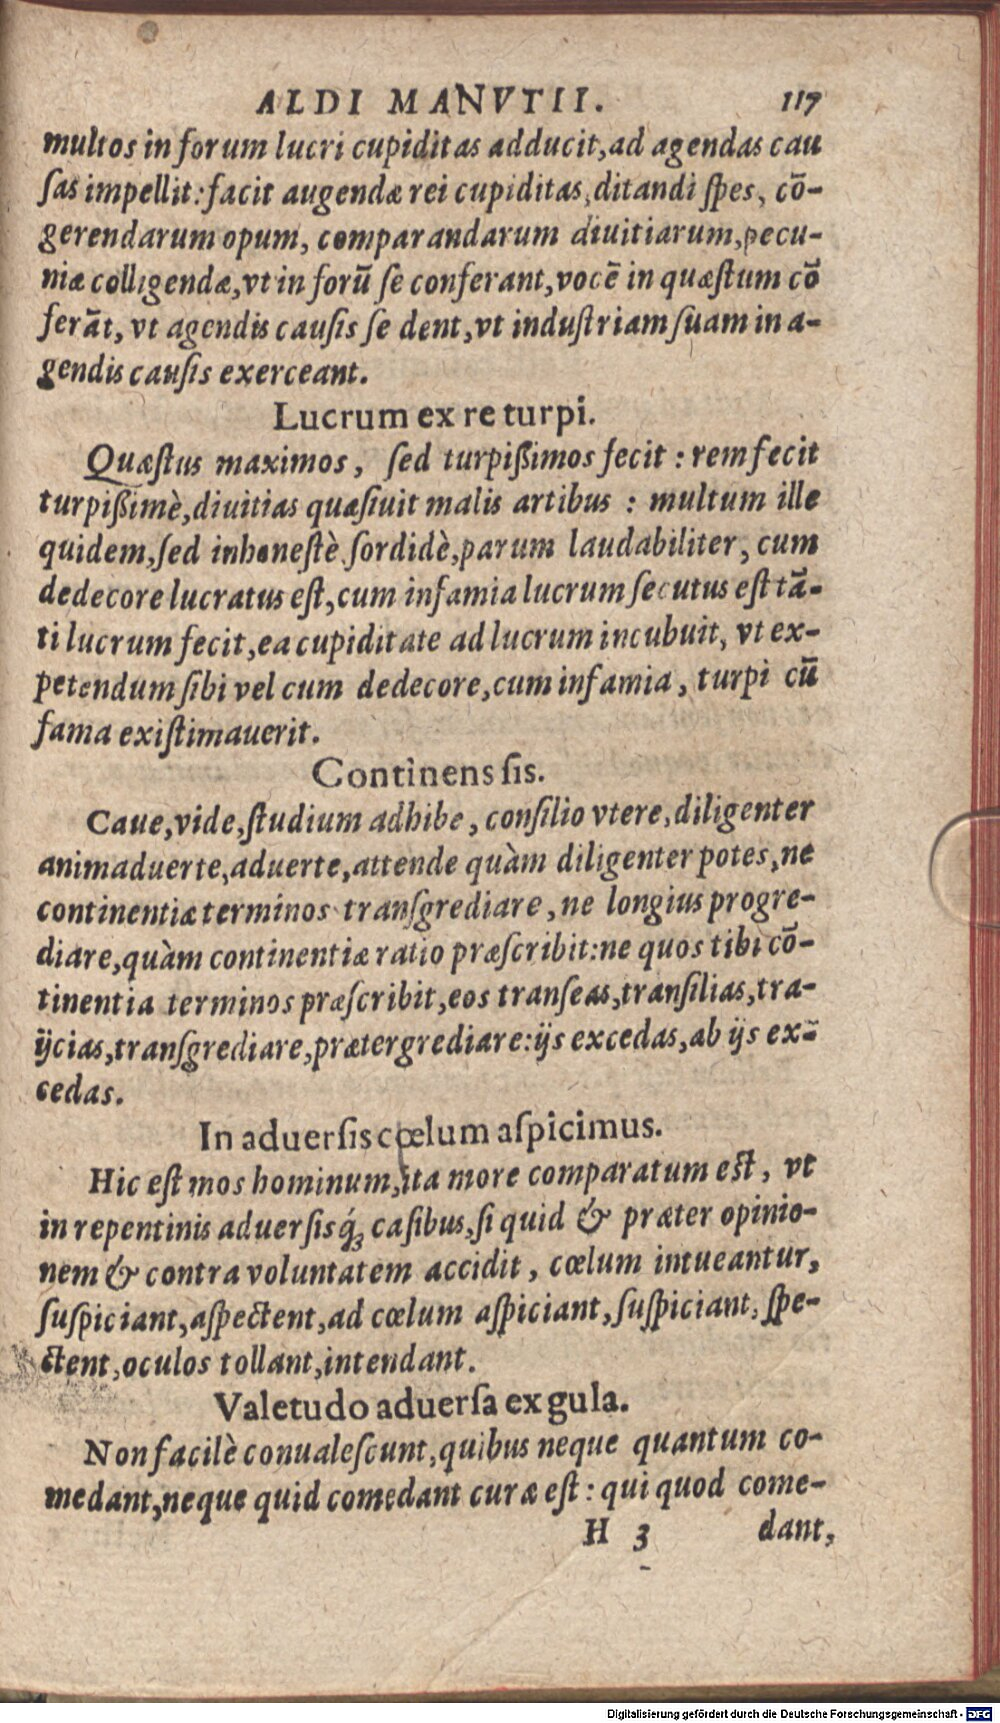 ALDI MANVTII. 117
multos in forum lucri cupiditas adducit, ad agendas cau
ſas impellit: facit augendæ rei cupiditas, ditandi ſpes, cō-
gerendarum opum, comparandarum diuitiarum, pecu-
niæ colligendæ, vt in forū ſe conferant, vocē in quæſtum cō
ferāt, vt agendis cauſis ſe dent, vt induſtriam ſuam in a-
gendis cauſis exerceant.
Lucrum ex re turpi.
Quæſtus maximos, ſed turpißimos fecit: rem fecit
turpißimè, diuitias quæſiuit malis artibus: multum ille
quidem, ſed inhoneſtè, ſordidè, parum laudabiliter, cum
dedecore lucratus eſt, cum infamia lucrum ſecutus eſt tā-
ti lucrum fecit, ea cupiditate ad lucrum incubuit, vt ex-
petendum ſibi vel cum dedecore, cum infamia, turpi cū
fama exiſtimauerit.
Continens ſis.
Caue, vide, ſtudium adhibe, conſilio vtere, diligenter
animaduerte, aduerte, attende quàm diligenter potes, ne
continentiæ terminos tranſgrediare, ne longius progre-
diare, quàm continentiæ ratio præſcribit: ne quos tibi cō-
tinentia terminos præſcribit, eos tranſeas, tranſilias, tra-
ijcias, tranſgrediare, prætergrediare: ijs excedas, ab ijs ex-
cedas.
In aduerſis cœlum aſpicimus.
Hic eſt mos hominum, ita more comparatum eſt, vt
in repentinis aduerſisq́; caſibus, ſi quid & præter opinio-
nem & contra voluntatem accidit, cœlum intueantur,
ſuſpiciant, aſpectent, ad cœlum aſpiciant, ſuſpiciant, ſpe-
ctent, oculos tollant, intendant.
Valetudo aduerſa ex gula.
Non facilè conualeſcunt, quibus neque quantum co-
medant, neque quid comedant curæ eſt: qui quod come-
H 3 dant,
Digitalisierung gefördert durch die Deutsche Forschungsgemeinschaft - DFG